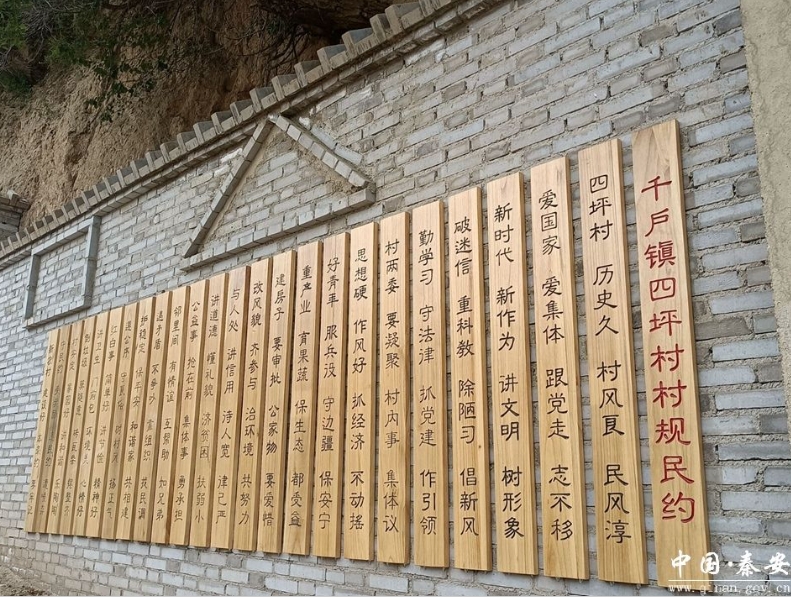 千户镇四坪村村规民约
四坪村 历史久 村风良 民风淳
爱国家 爱集体 跟党走 志不移
新时代 新作为 讲文明 树形象
破迷信 重科教 除陋习 倡新风
勤学习 守法律 抓党建 作引领
村两委 要凝聚 村内事 集体议
思想硬 作风好 抓经济 不动摇
好青年 服兵役 守边疆 保安宁
重产业 育果蔬 保生态 都受益
建房子 要审批 公家物 要爱惜
改风貌 齐参与 治环境 共努力
与人处 讲信用 待人宽 律己严
讲道德 懂礼貌 济贫困 扶弱小
公益事 抢在前 集体事 勇承担
邻里间 有情谊 互帮助 如兄弟
遇矛盾 不争吵
护稳定 保平安 和谐家 共相建
红白事 简单好 讲节俭 精神好
中国·秦安
www.qinan.gov.cn